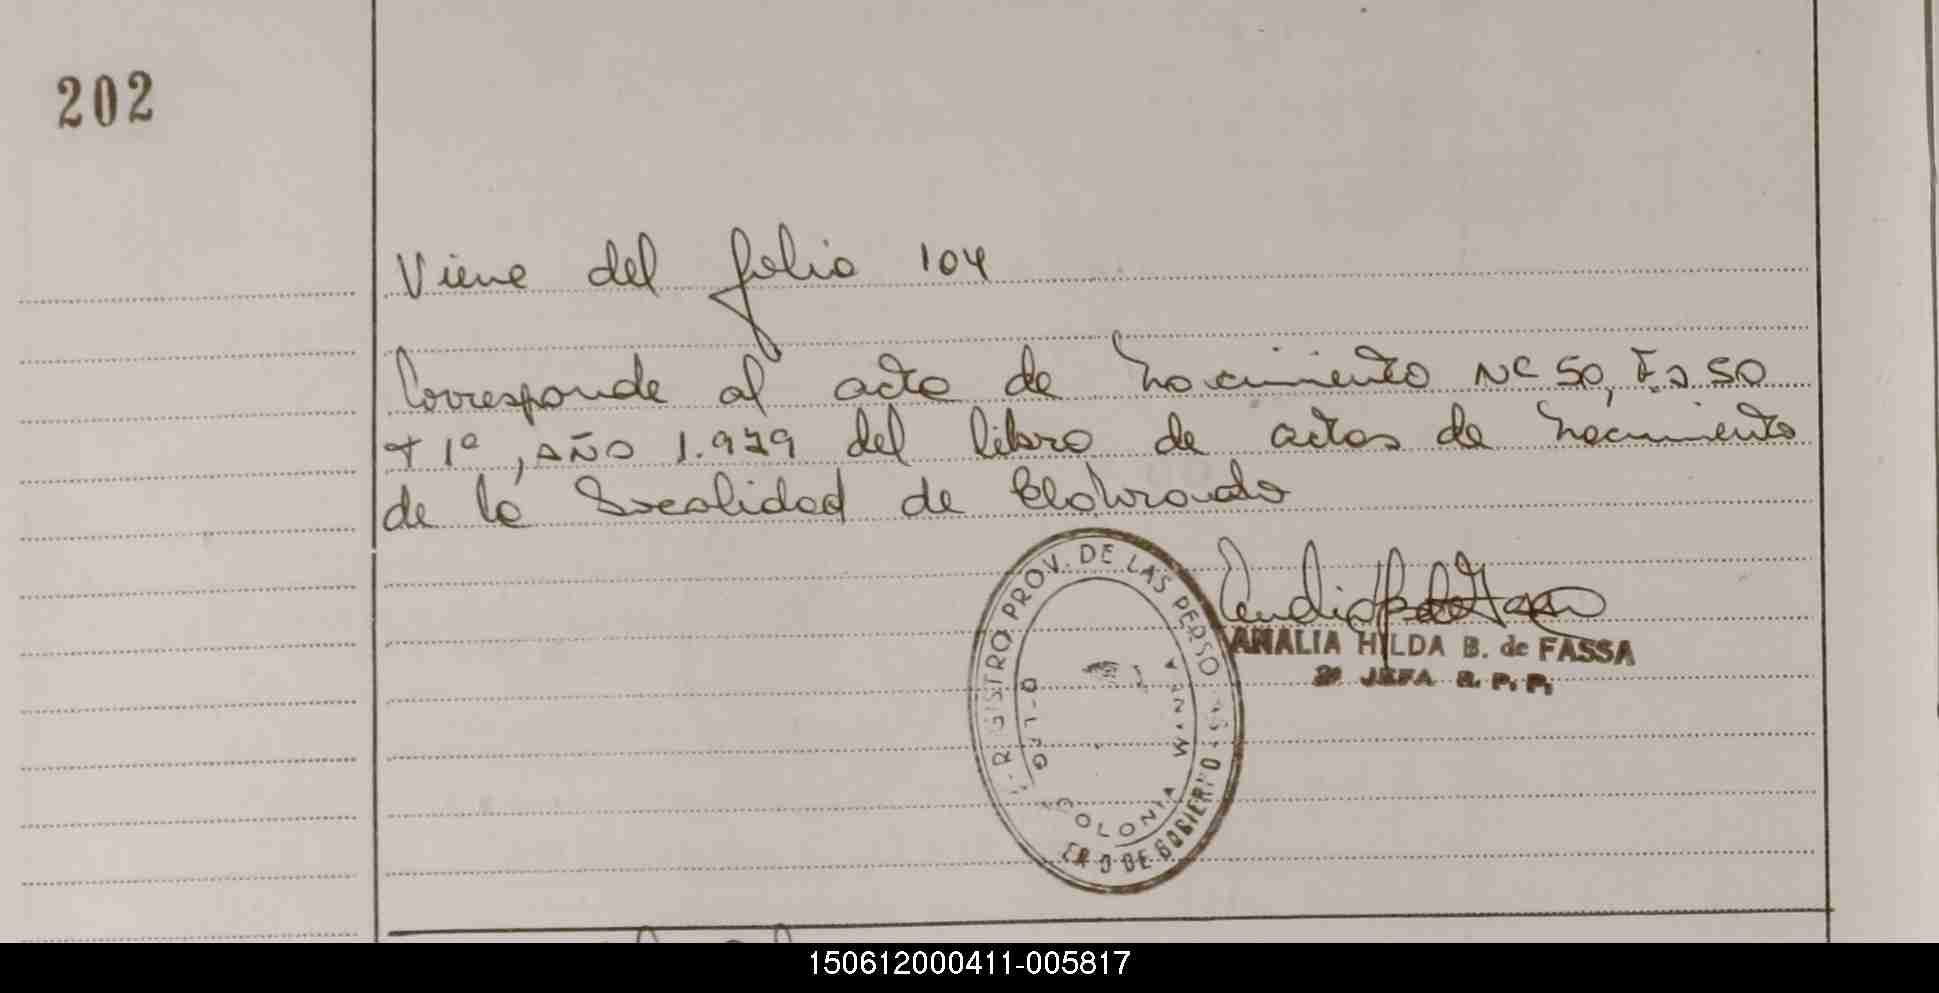 202
Viene del folio 104
Corresponde al acta de nacimiento Nº 50, Fº 50
tº 1º, AÑO 1.979 del libro de actas de nacimiento
de la localidad de
REGISTRO PROV. DE LAS PERSO
COLONIA
DE GOBIERNO
ANALIA HILDA B. de FASSA
JEFA R. P. P.
150612000411-005817